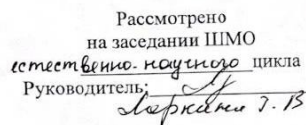 Рассмотрено
на заседании ШМО
естественно-научного цикла
Руководитель:
Ларкина Т. В